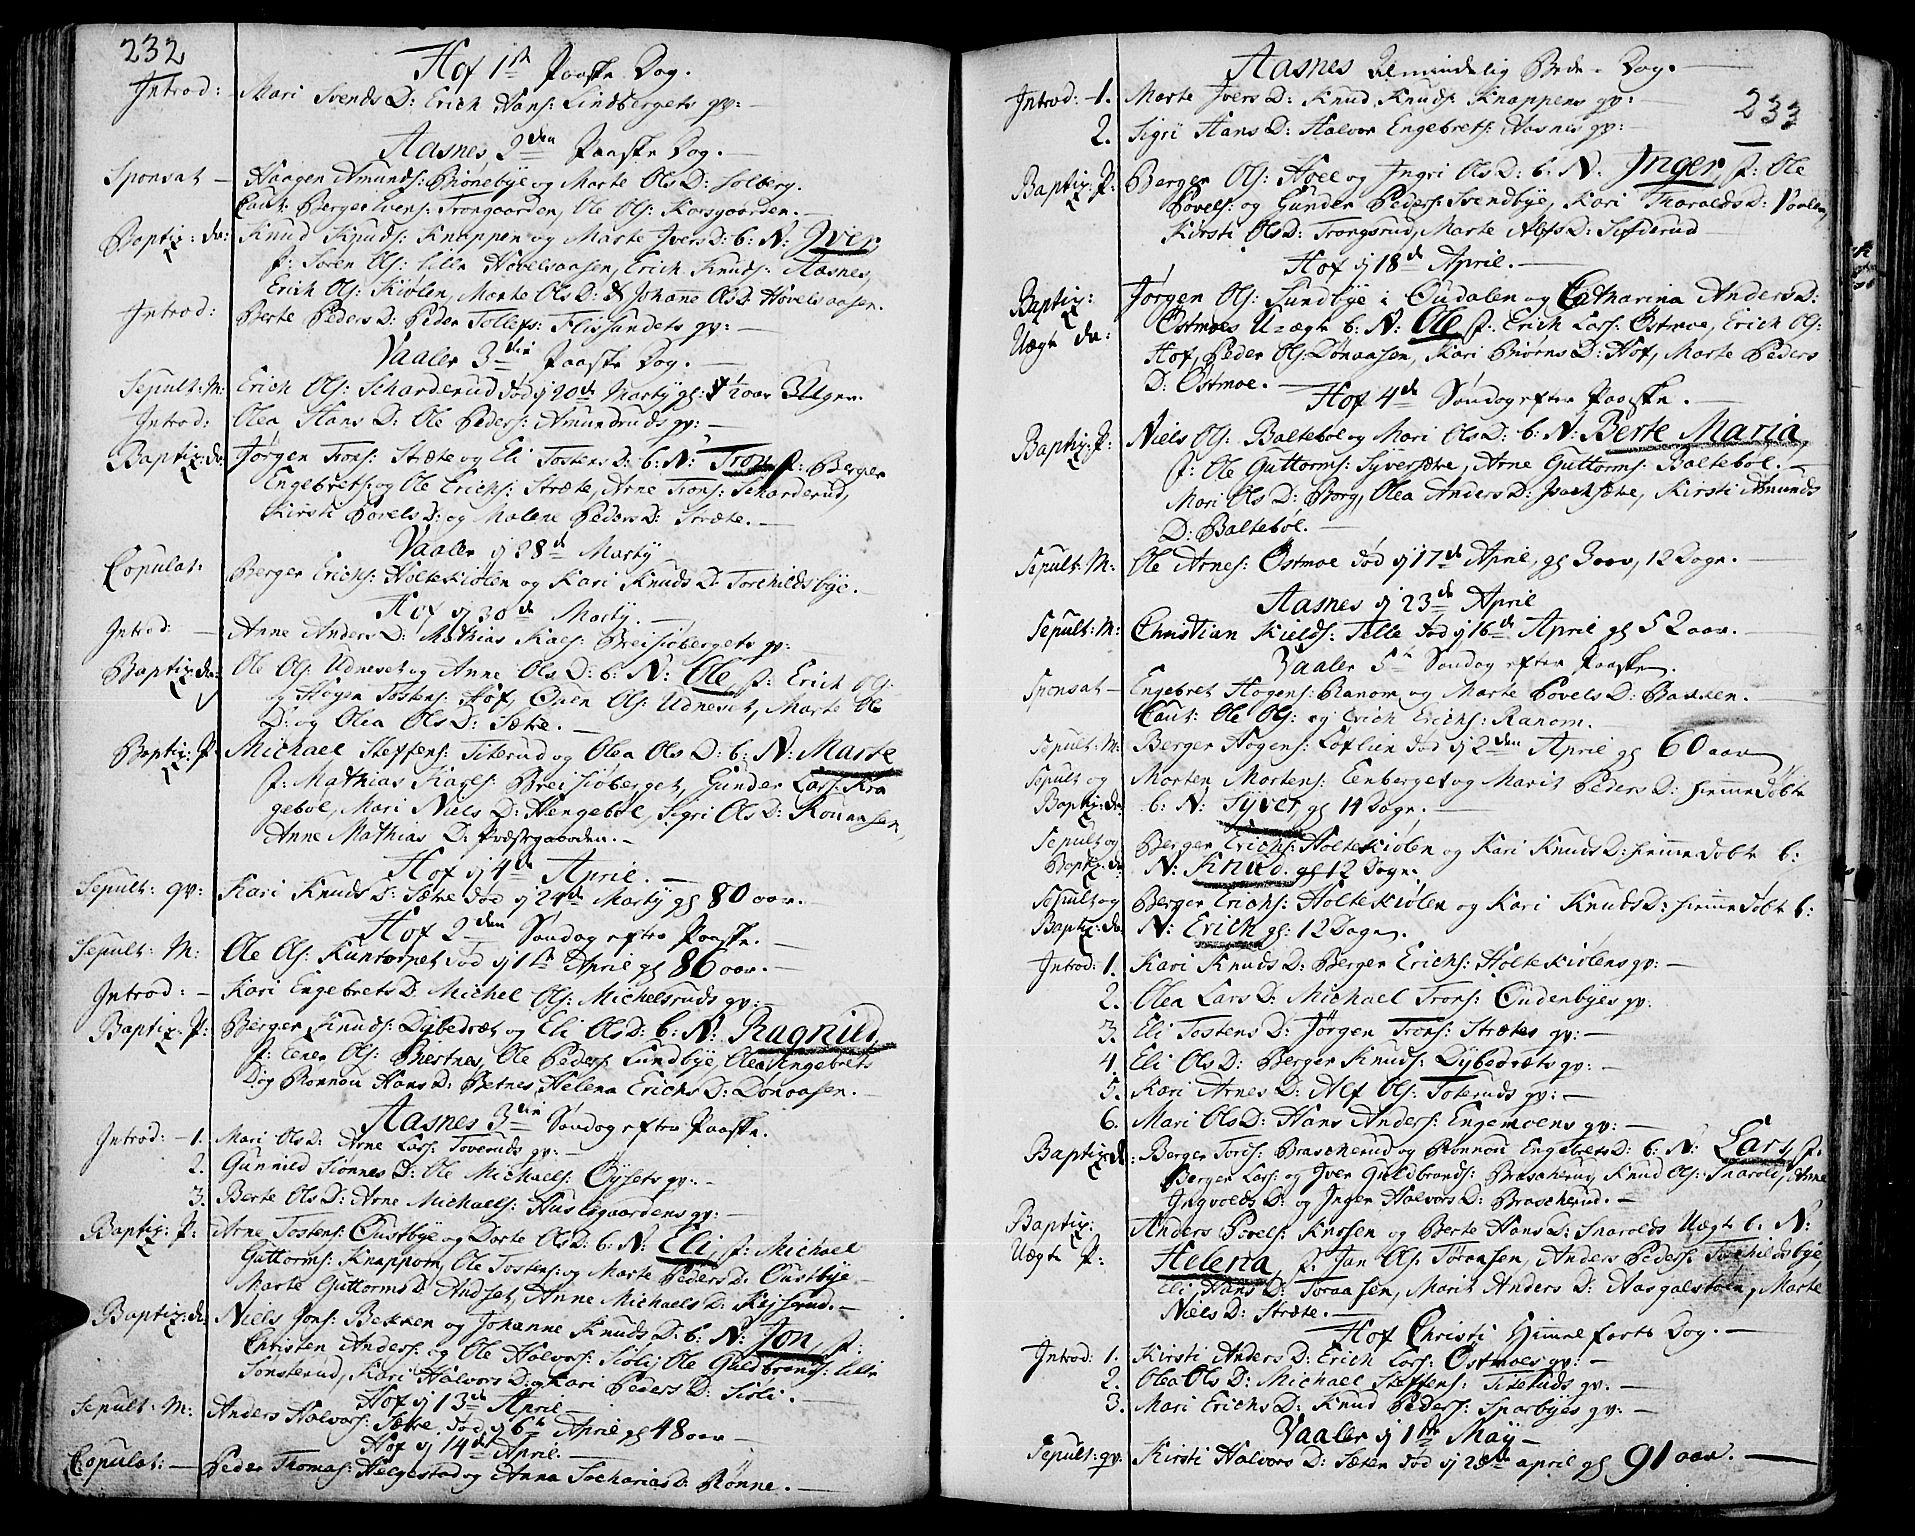 232
Hof 1ste Paaske Dag.
Introd: - Mari SvendsD: Erich Hans: Lindbergets qv: -
Aasnes 2den Paaske Dag. -
Sponsat - Haagen Amunds: Biønebye og Marte OlsD: Solberg.
Caut: Berger Svens: Trongaarden, Ole Ols: Korsgaarden. -
Baptiz: do: Knud Knuds: Knappen og Marte IversD: b: N: Iver
f: Søren Ols: Lille Hovelsaasen, Erich Knuds: Aasnes,
Erich Ols: Kiølen, Marte OlsD: & Johanne OlsD: Hovelsaasen.
Introd: Berte PedersD: Peder Tollefs: Flissundets qv: -
Vaaler 3die Paaske Dag. -
Sepult: M: Erich Ols: Scharderud død d 20de Marty gl: 1/2 aar 3 Uger.
Introd: Olea HansD: Ole Peders: Amundruds qv: -
Baptiz: do: Jørgen Trons: Stræte og Eli TostensD: b: N: Tron f: Berger
Engebrets: og Ole Erichs: Stræte, Arne Trons: Scharderud,
Kirsti PovelsD: og Malene PedersD: Stræte. -
Vaaler d 28de Marty
Copulat: Berger Erichs: Holtekiølen og Kari KnudsD: Torchildsbye. -
Hof d 30de Marty. -
Introd: - Anne AndersD: Mathias Kals: Breisiøbergets qv: -
Baptiz: do: Ole Ols: Udneset og Anne OlsD: b: N: Ole f: Erich Ols:
og Hogen Tostens: Hof, Even Ols: Udneset, Marte Ols
D: og Olea OlsD: Sætre. -
Baptiz: P: Michael Steffens: Titerud og Olea OlsD: b: N: Marte
f: Mathias Karls: Breisiøberget, Gunder Lars: Kra
gebøl, Mari NielsD: Hengebøl, Sigri OlsD: Rønaasen,
Anne MathiasD: Præstgaarden. -
Hof d 4de April. -
Sepult: qv: Kari KnudsD: Sætre død d 24de Marty gl 80 aar. -
Hof 2den Søndag efter Paaske. -
Sepult: M: Ole Ols: død d 1ste April gl 86 aar. -
Introd: - Kari EngebretsD: Michel Ols: Michelsruds qv: -
Baptiz: P: Berger Knuds: Dybedræt og Eli OlsD: b: N: Ragnild
f: Ener Ols: Ole Peders: Sundbye, Olea Engebrets
D: og Rønnou HansD: Helena ErichsD: Dønaasen. -
Aasnes 3die Søndag efter Paaske.
Introd: - 1. Mari OlsD: Arne Lars: Toveruds qv: -
2. Gunnild SionnesD: Ole Michaels: Øysets qv: -
3. Berte OlsD: Arne Michaels: Huslegaardens qv: -
Baptiz: P: Arne Tostens: Oustbye og Dorte OlsD: b: N: Eli, f: Michael
Guttorms: Knappom, Ole Tostens: og Marte PedersD: Oustbye
Marte GuttormsD: Audset, Anne MichaelsD: -
Baptiz: do: Niels Jons: Bekken og Johanne KnudsD: b: N: Jon, f:
Christen Anders: og Ole Halvors: Sioli, Ole Guldbrands: Lille
Sønsterud, Kari HalvorsD: og Kari PedersD: Sioli. -
Hof d 13de April -
Sepult: M: Anders Halvors: Sætre død d 6te April gl 48 aar
Hof d 14de April. -
Copulat: - Peder Thomas: Helgestad og Anna SachariasD: Rønne. -
Aasnes Almindelig Bede-Dag. -
233
Introd: -1. Marte IversD: Knud Knuds: Knappens qv: -
2. Sigri HansD: Halvor Engebrets: Aasnes qv: -
Baptiz: P: Berger Ols: Hoel og Ingri OlsD: b: N: Inger, f: Ole
Povels: og Gunder Peders: Svendbye, Kari TharaldsD:
Kirsti OlsD: Trongsrud, Marte AlfsD: Sæterud
Hof d 18de April. -
Baptiz: Uægte do: Jørgen Ols: Sundbye i Oudalen og Catharina AndersD:
Østmoes Uægte b: N: Ole f: Erich Lars: Østmoe, Erich Ols:
Hof, Peder Ols: Dønaasen, Kari BiørnsD: Hof, Marte Peders
D: Østmoe. -
Hof 4de Søndag efter Paaske. -
Baptiz: P: Niels Ols: Baltebøl og Mari OlsD: b: N: Berte Maria,
f: Ole Guttorms: Syversætre, Arne Guttorms: Baltebøl. -
Mari OlsD: Borg, Olea AndersD: Isachsætre, Kirsti Amunds
D: Baltebøl. -
Sepult: M: Ole Arnes: Østmoe død d 17de April, gl 3 aar, 12 Dage. -
Aasnes d 23de April
Sepult: M: Christian Kields: Tille død d 16de April gl 52 aar. -
Vaaler 5te Søndag efter Paaske.
Sponsat - Engebret Hogens: Ranom og Marte PovelsD: Bakken.
Caut: Ole Ols: og Erich Erichs: Ranom.
Sepult: M: Berger Hogens: Løflien død d 2den April gl 60 aar
Sepult og Baptiz: do: Morten Mortens: Eenberget og Marit PedersD: hiemmedøbte
b: N: Syver gl 14 Dage. -
Sepult og Baptiz: do: Berger Erichs: Holtekiølen og Kari KnudsD: hiemmedøbte b:
N: Knud gl 12 Dage.
Sepult og Baptiz: do: Berger Erichs: Holtekiølen og Kari KnudsD: hiemmedøbte b:
N: Erich gl: 12 Dage.
Introd: 1. Kari KnudsD: Berger Erichs: Holtekiølens qv: -
2. Olea LarsD: Michael Trons: Oudenbyes qv:
3. Eli TostensD: Jørgen Trons: Strætes qv: -
4. Eli OlsD: Berger Knuds: Dybedræts qv: -
5. Kari ArnesD: Alf Ols: Toteruds qv: -
6. Mari OlsD: Hans Anders: Engemoens qv: -
Baptiz: do: Berger Tords: Brascherud og Rønnou EngebretsD: b: N: Lars, f:
Berger Lars: og Iver Guldbrands: Brascherud Knud Ols: Snarold, Anne
IngvoldsD: og Inger HalvorsD: Brascherud. -
Baptiz: Uægte P: Anders Povels: Knssen og Berte HansD: Snarolds Uægte b: N:
Helena, f: Jan Ols: Toraasen, Anders Peders: Torchildsbye,
Eli HansD: Toraasen, Marit AndersD: Marte
NielsD: Stræte. -
Hof Christi Himmelfarts Dag. -
Introd: 1. Kirsti AndersD: Erich Lars: Østmoes qv: -
2. Olea OlsD: Michael Steffens: Titeruds qv: -
3. Mari ErichsD: Knud Peders: Sparbyes qv: -
Vaaler d 1ste May -
Sepult: qv: Kirsti HalvorsD: Sætren død d 25de april gl 91 aar. -